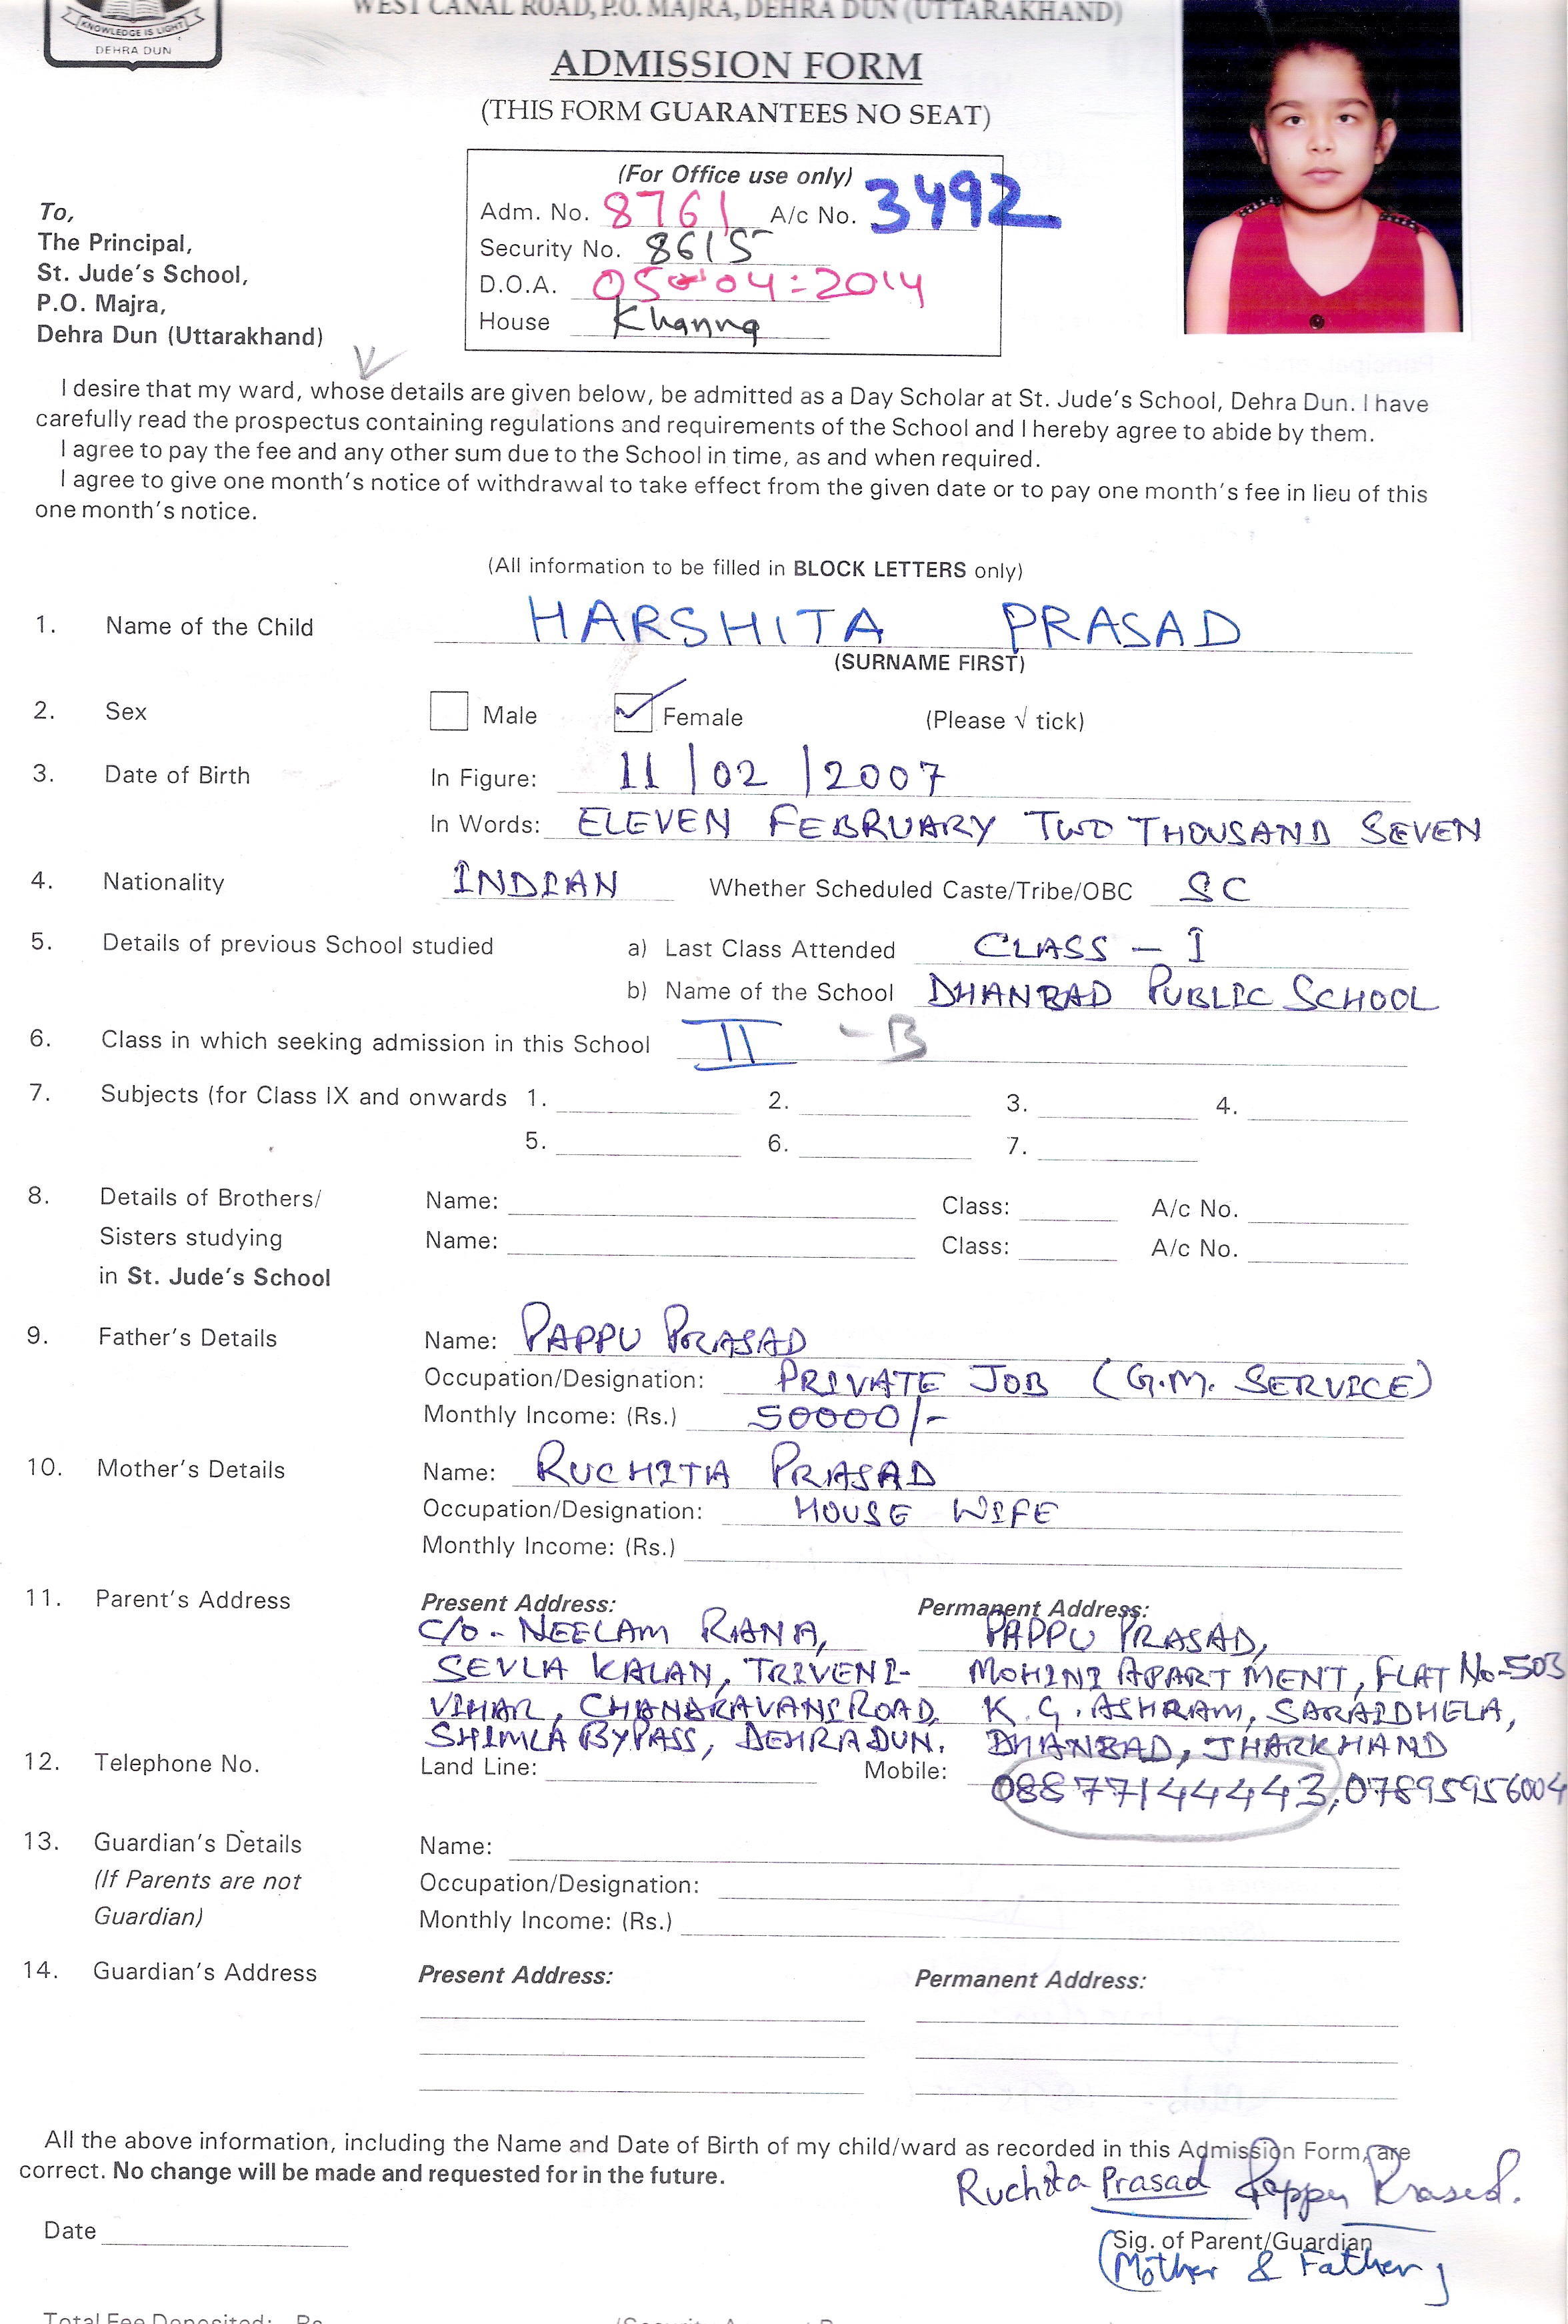 KNOWLEDGE IS LIGHT
DEHRA DUN
WEST CANAL ROAD, P.O. MAJRA, DEHRA DUN (UTTARAKHAND)
ADMISSION FORM
(THIS FORM GUARANTEES NO SEAT)
(For Office use only)
Adm. No. 8761 A/c No. 3492
Security No. 8615
D.O.A. 05-04-2014
House Khanna
To,
The Principal,
St. Jude's School,
P.O. Majra,
Dehra Dun (Uttarakhand)
I desire that my ward, whose details are given below, be admitted as a Day Scholar at St. Jude's School, Dehra Dun. I have
carefully read the prospectus containing regulations and requirements of the School and I hereby agree to abide by them.
I agree to pay the fee and any other sum due to the School in time, as and when required.
I agree to give one month's notice of withdrawal to take effect from the given date or to pay one month's fee in lieu of this
one month's notice.
(All information to be filled in BLOCK LETTERS only)
1. Name of the Child HARSHITA PRASAD
(SURNAME FIRST)
2. Sex Male ✓ Female (Please √ tick)
3. Date of Birth In Figure: 11/02/2007
In Words: ELEVEN FEBRUARY TWO THOUSAND SEVEN
4. Nationality INDIAN Whether Scheduled Caste/Tribe/OBC SC
5. Details of previous School studied a) Last Class Attended CLASS - I
b) Name of the School DHANBAD PUBLIC SCHOOL
6. Class in which seeking admission in this School II - B
7. Subjects (for Class IX and onwards 1. 2. 3. 4.
5. 6. 7.
8. Details of Brothers/ Name: Class: A/c No.
Sisters studying Name: Class: A/c No.
in St. Jude's School
9. Father's Details Name: PAPPU PRASAD
Occupation/Designation: PRIVATE JOB (G.M. SERVICE)
Monthly Income: (Rs.) 50000/-
10. Mother's Details Name: RUCHITA PRASAD
Occupation/Designation: HOUSE WIFE
Monthly Income: (Rs.)
11. Parent's Address Present Address: Permanent Address:
C/O - NEELAM RANA, PAPPU PRASAD,
SEVLA KALAN, TRIVENI- MOHINI APARTMENT, FLAT No-503
VIHAR, CHANDRAVANI ROAD, K.G. ASHRAM, SARAIDHELA,
SHIMLA BYPASS, DEHRADUN. DHANBAD, JHARKHAND
12. Telephone No. Land Line: Mobile: 08877144443, 07895956004
13. Guardian's Details Name:
(If Parents are not Occupation/Designation:
Guardian) Monthly Income: (Rs.)
14. Guardian's Address Present Address: Permanent Address:
All the above information, including the Name and Date of Birth of my child/ward as recorded in this Admission Form, are
correct. No change will be made and requested for in the future.
Ruchita Prasad Pappu Prasad.
Date Sig. of Parent/Guardian
(Mother & Father)
Total Fee Deposited: Rs.